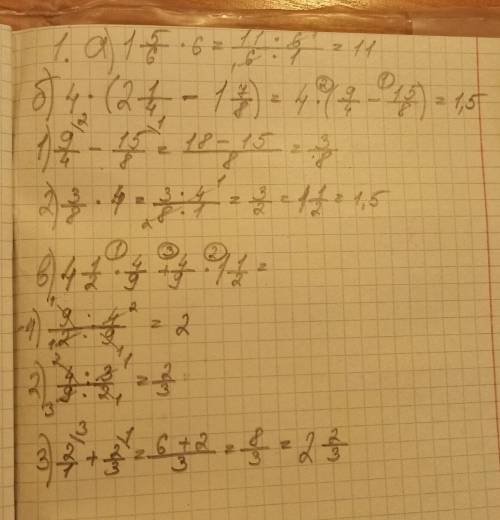 1. а) 1 5/6 · 6 = 11 · 6 / 6 · 1 = 11
б) 4 · (2 1/4 − 1 7/8) = 4 · (9/4 − 15/8) = 1,5
1) 9/4 − 15/8 = 18 − 15 / 8 = 3/8
2) 3/8 · 4 = 3 · 4 / 8 · 1 = 3/2 = 1 1/2 = 1,5
в) 4 1/2 · 4/9 + 4/9 · 1 1/2 =
1) 9 · 4 / 2 · 9 = 2
2) 4 · 3 / 9 · 2 = 2/3
3) 2/1 + 2/3 = 6 + 2 / 3 = 8/3 = 2 2/3